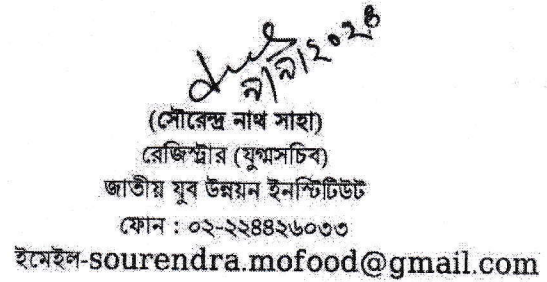 ৯/৯/২০২৪
(সৌরেন্দ্র নাথ সাহা)
রেজিস্ট্রার (যুগ্মসচিব)
জাতীয় যুব উন্নয়ন ইনস্টিটিউট
ফোন : ০২-২২৪৪২৬০৩৩
ইমেইল-sourendra.mofood@gmail.com